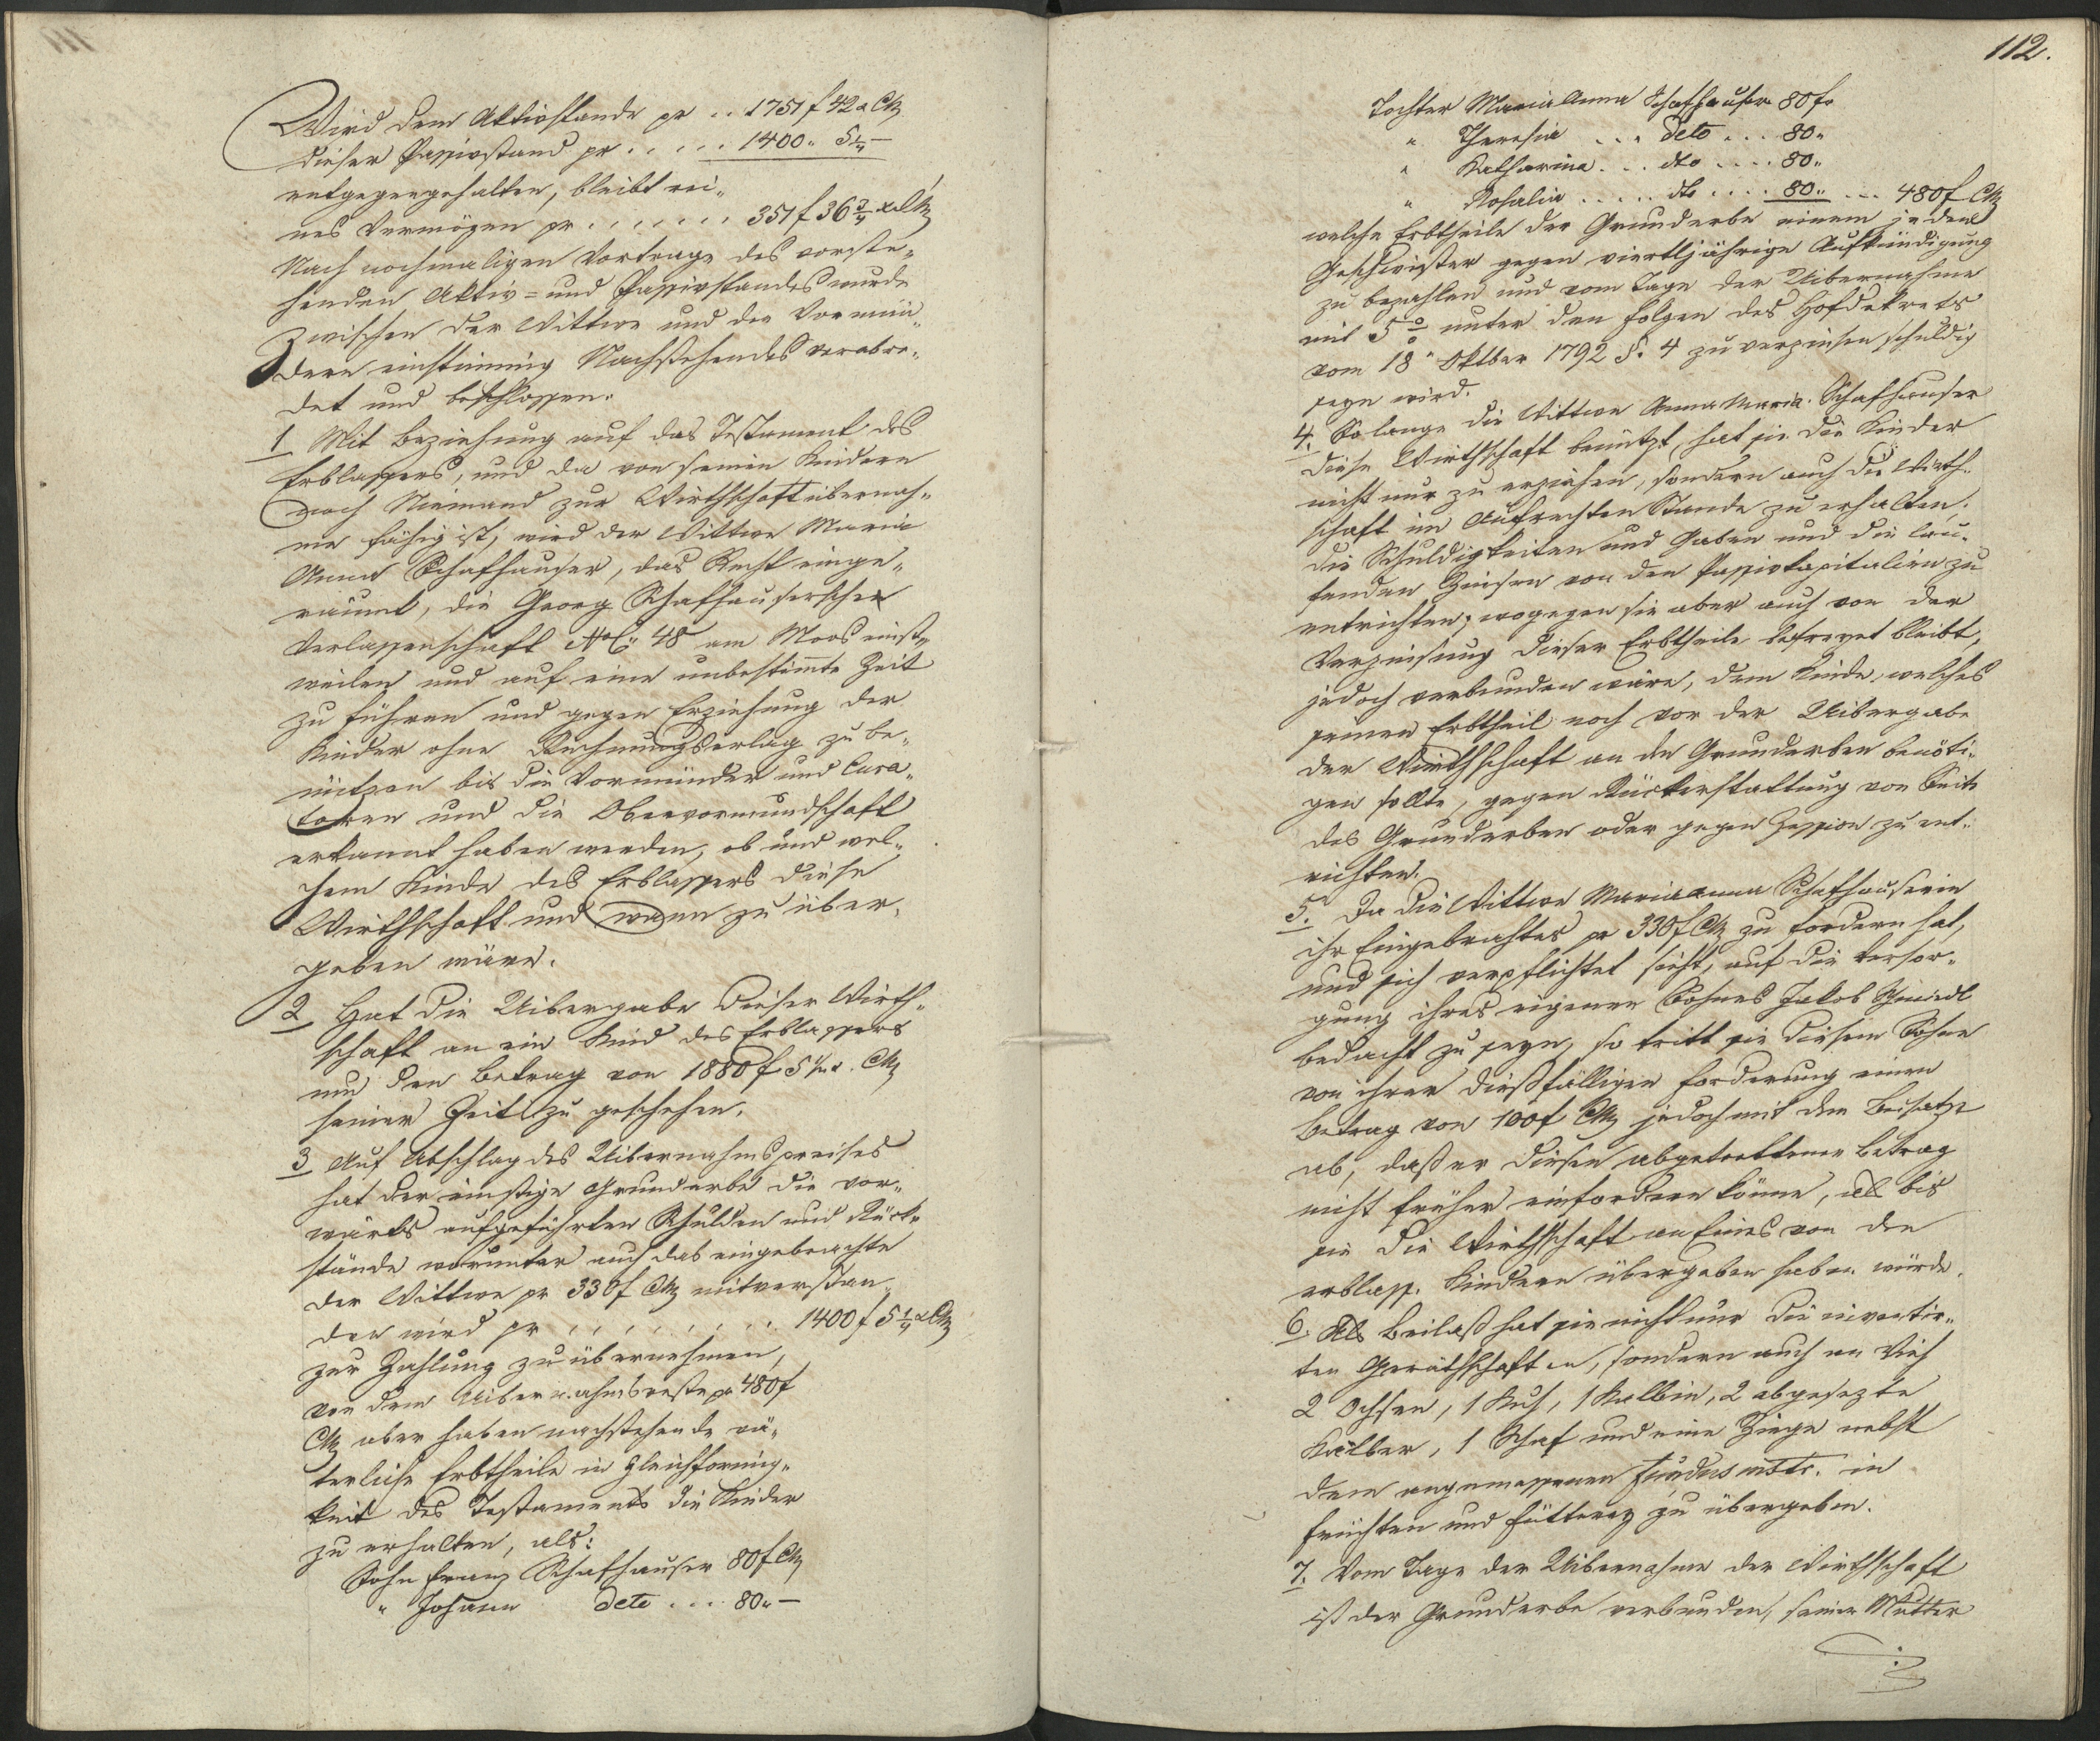 Wird dem Aktivstande pr .. 1751 f 42 x CMz
dieser Passivstand pr ..... 1400 „ 5 1/4 —
entgegengehalten, bleibt rei-
nes Vermögen pr ....... 351 f 36 3/4 x CMz
Nach nochmaligen Vortrage des vorste-
henden Aktiv- und Passivstandes wurde
zwischen der Wittwe und den Vormün-
dern einstimmig Nachstehendes verabre-
det und beschlossen.
1 Mit Beziehung auf das Testament des
Erblassers, und da von seinen Kindern
noch Niemand zur Wirthschaftübernah-
me fähig ist, wird der Wittwe Maria
Anna Schafhauser, das Recht einge-
räumt, die Georg Schafhauserschen
Verlassenschaft NC: 48 am Moos einst-
weilen und auf eine unbestimte Zeit
zu führen und gegen Erziehung der
Kinder ohne Rechnungserlag zu be-
nützen bis die Vormünder und Cura-
toren und die Obervormundschaft
erkannt haben werden, ob und wel-
chem Kinde des Erblassers diese
Wirthschaft und wann zu über-
geben wäre.
2 Hat die Uibergabe dieser Wirth-
schaft an ein Kind des Erblassers
um den Betrag von 1880 f 5 1/4 x. CMz
seiner Zeit zu geschehen.
3 Auf Abschlag des Uibernahmspreises
hat der einstige Grunderbe die vor-
wärts aufgeführten Schulden und Rück-
stände worunter auch das eingebrachte
der Wittwe pr 330 f CMz mitverstan-
den wird pr ......... 1400 f 5 1/4 x CMz
zur Zahlung zu übernehmen,
von dem Uibernahmsreste pr 480 f
CMz aber haben nachstehende vä-
terliche Erbtheile in Gleichförmig-
keit des Testaments die Kinder
zu erhalten, als:
Sohn Franz Schafhauser 80 f CMz
„ Johann deto ... 80 „ —
112.
Tochter Maria Anna Schafhauser 80 f„
„ Theresia ... deto ... 80 „
„ Katharina ... dto .... 80 „
„ Rosalia ..... dto .... 80 „ ... 480 f CMz
welche Erbtheile der Grunderbe einem jeden
Geschwister gegen viertljährige Aufkündigung
zu bezahlen und vom Tage der Uibernahme
mit 5 % unter den Folgen des Hofdekrets
vom 18t Oktber 1792 §. 4 zu verzinsen schuldig
seyn wird.
4. So lange die Wittwe Anna Maria Schafhauser
diese Wirthschaft benützt, hat sie die Kinder
nicht nur zu erziehen, sondern auch die Wirth-
schaft im Aufrechten Stande zu erhalten,
die Schuldigkeiten und Gaben und die lau-
fenden Zinsen von den Passivkapitalien zu
entrichten, wogegen sie aber auch von der
Verzinsung dieser Erbtheile befreyet bleibt,
jedoch verbunden wäre, dem Kinde, welches
seinen Erbtheil noch vor der Uibergabe
der Wirthschaft an den Grunderben benöti-
gen sollte, gegen Rückerstattung von Seite
des Grunderben oder gegen Zession zu ent-
richten.
5. Da die Wittwe Maria Anna Schafhauserin
ihr Eingebrachtes pr 330 f CMz zu fordern hat,
und sich verpflichtet sieht, auf die Versor-
gung ihres eigenen Sohnes Jakob Schmiedl
bedacht zu seyn, so tritt sie diesem Sohne
von ihrer dießfälligen Forderung einen
Betrag von 100 f CMz jedoch mit dem Beisatze
ab, daß er diesen abgetrettenen Betrag
nicht früher einfordern könne, als bis
sie die Wirthschaft an Eines von den
erblass. Kindern übergeben haben würde.
6. Als Beilaß hat sie nicht nur die inventir-
ten Geräthschaften, sondern auch an Vieh
2 Ochsen, 1 Kuh, 1 Kalbin, 2 abgesezte
Kälber, 1 Schaf und eine Ziege nebst
dem angemessenen fundus instr. in
Früchten und Fütterey zu übergeben.
7. Vom Tage der Uibernahme der Wirthschaft
ist der Grunderbe verbunden, seiner Mutter